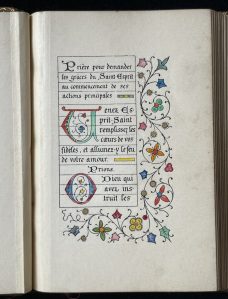 Prière pour demander
les grâces du Saint Esprit
au commencement de ses
actions principales
Venez Es
prit-Saint
remplissez les
cœurs de vos
fidèles, et allumez-y le feu
de votre amour.
Prions.
O Dieu qui
avez ins
truit les